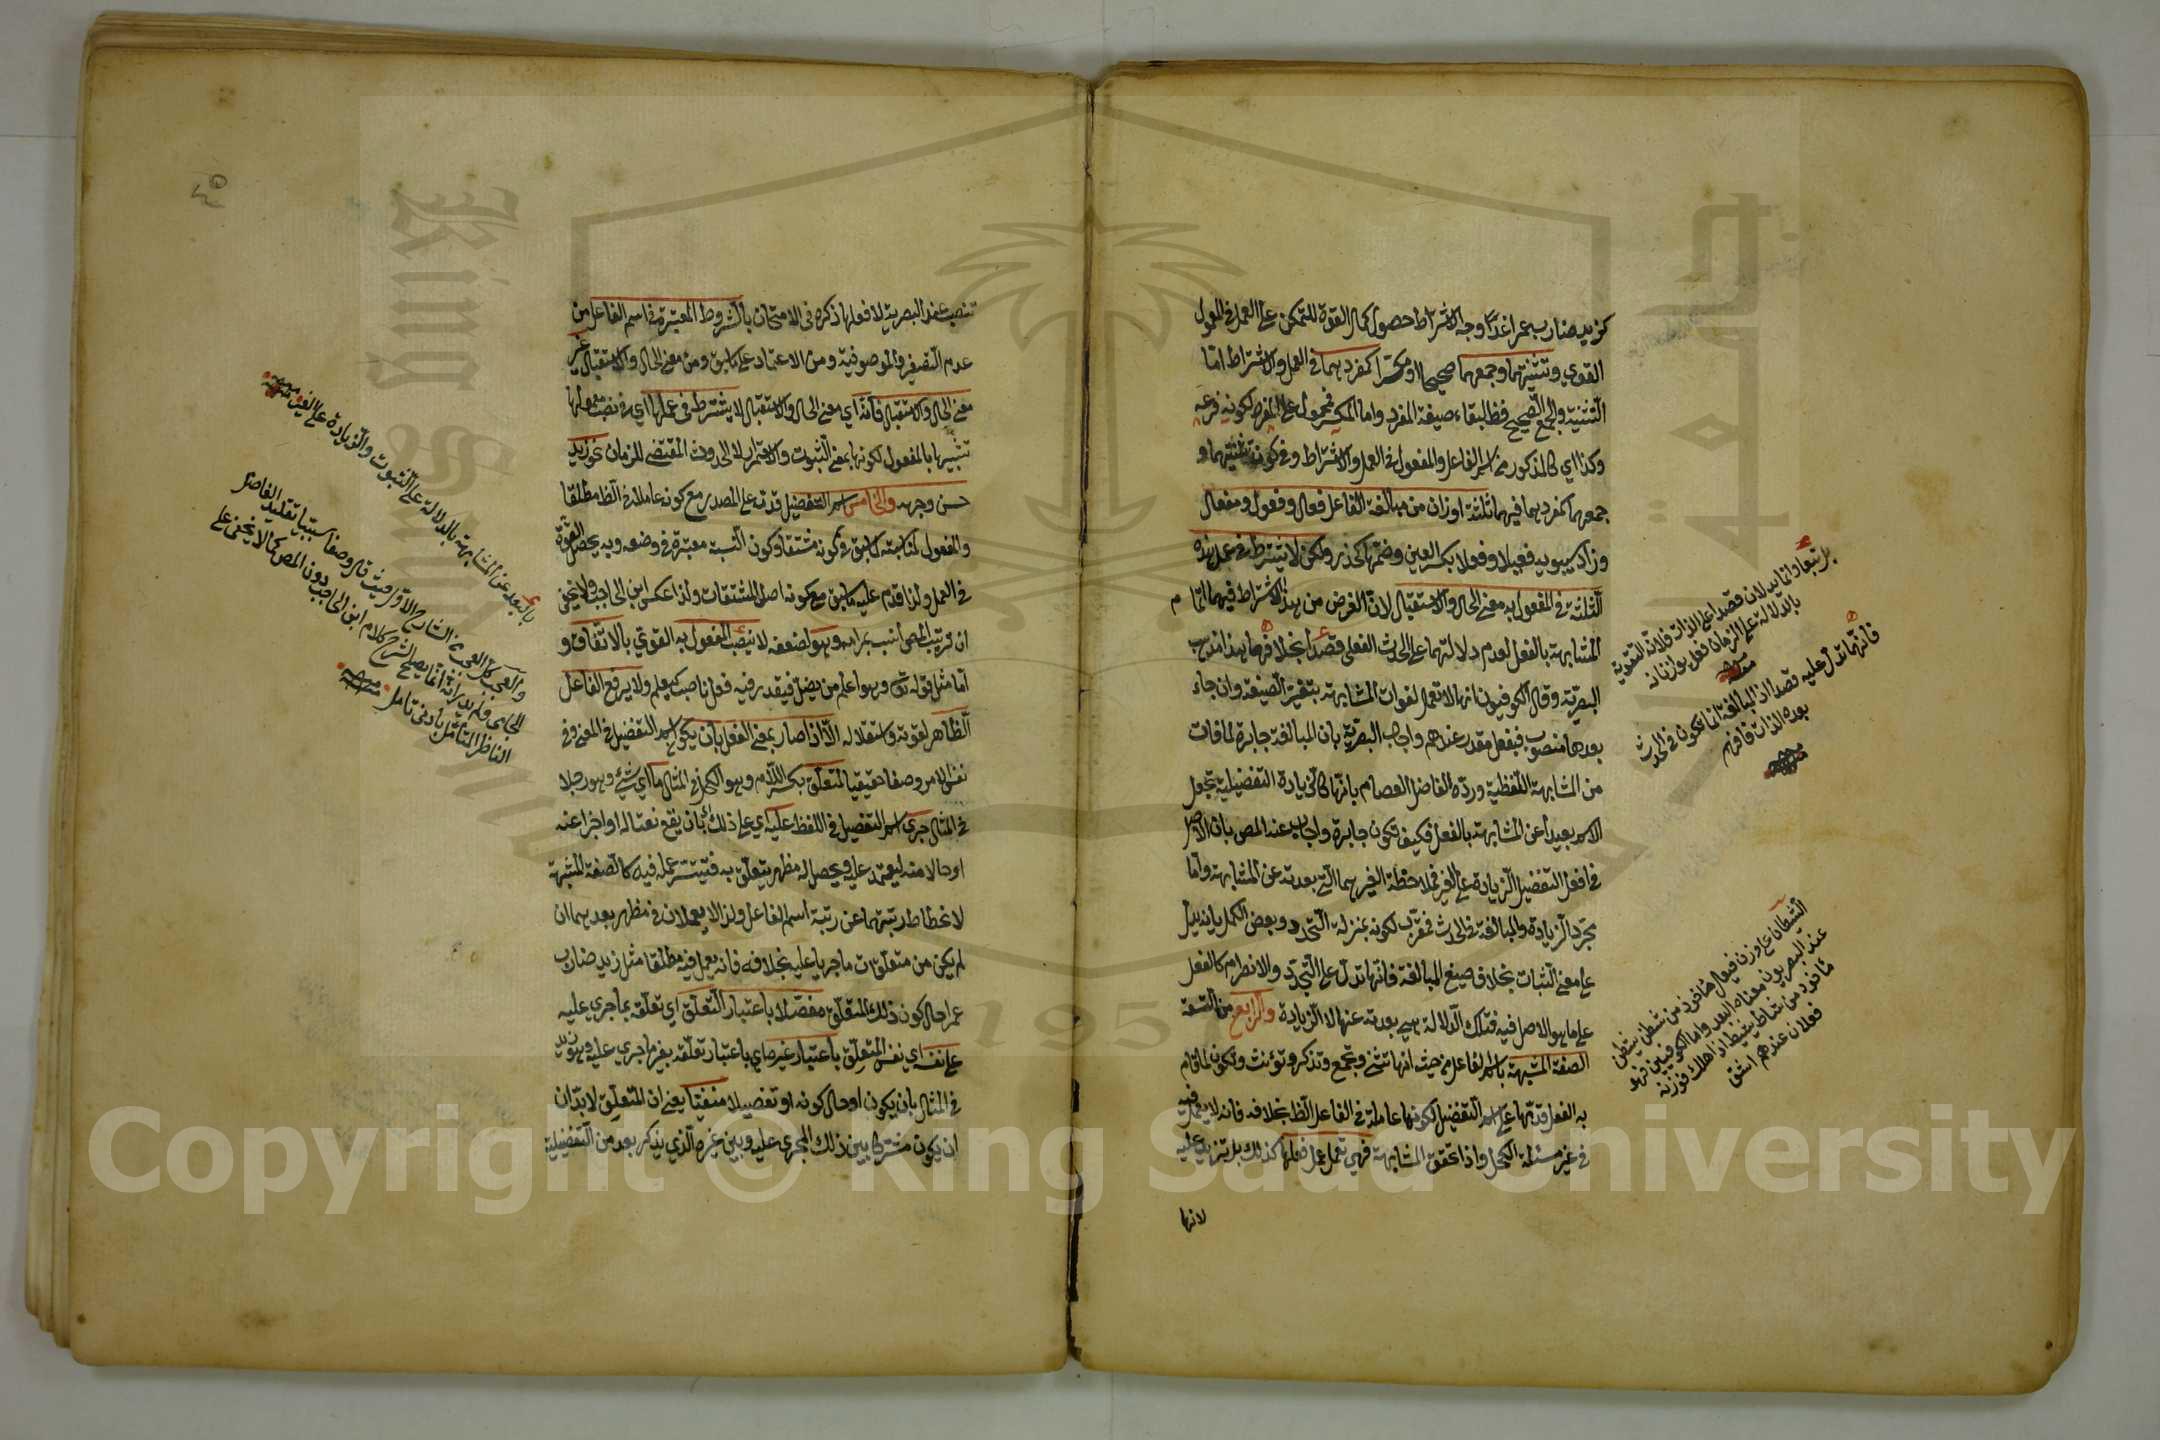 كزيد ضارب عمرا غدا وجه الاشتراط حصول كمال القوة للتمكن على العمل في المعمول
القوي وتثنيتهما وجمعهما صحيحا او مكسرا كمفردهما في العمل والاشتراط اما
التثنية والجمع الصحيح فظ لبقاء صيغة المفرد واما المكسر فمحمول على المفرد لكونه فرعه
وكذا اي كالمذكور من اسم الفاعل والمفعول في العمل والاشتراط وفي كون تثنيتهما و
جمعهما كمفردهما فيهما ثلثة اوزان من مبالغة الفاعل فعال وفعول ومفعال
وزاد سيبويه فعيلا وفعلا بكسر العين وضمها كحذر ولكن لا يشترط في عمل هذه
الثلثة في المفعول به معنى الحال والاستقبال لان الغرض من هذا الاشتراط فيهما اتمام
المشابهة بالفعل لعدم دلالتهما على الحدث الفعلي قصدا بخلافها هذا مذهب
البصرية وقال الكوفيون انها لا تعمل لفوات المشابهة بتغير الصيغة وان جاء
بعدها منصوب فبفعل مقدر عندهم واجاب البصرية بان المبالغة جابرة لما فات
من المشابهة اللفظية ورده الفاضل العصام بانها كالزيادة التفضيلية تجعل
الاسم بعيدا عن المشابهة بالفعل فكيف تكون جابرة واجاب عنه المص بان الاصل
في افعل التفضيل الزيادة على الغير فملاحظة الغير هما التي بعدته عن المشابهة واما
مجرد الزيادة والمبالغة في الحدث فمقرب لكونه بمنزلة التجدد وبعض الكمل بانه يدل
على معنى الثبات بخلاف صيغ المبالغة فانها تدل على التجدد والانصرام كالفعل
على ما هو الاصل فيه فتلك الدلالة هي بعدته عنها لا الزيادة والرابع من التسعة
الصفة المشبهة باسم الفاعل من حيث انها تثنى وتجمع وتذكر وتؤنث ولكون لما قام
به الفعل قدمها على اسم التفضيل لكونها عاملة في الفاعل الظ بخلافه فانه لا يعمل فيه
في غير مسئلة الكحل واذا تحقق المشابهة فهي تعمل عمل فعلها كذلك بل تزيد عليه
لانها
بل تبعا وانما يدلان قصدا على الذات فلا بد لتقوية
بالدلالة على الزمان فعل يوازنانه
منه
فانها تدل عليه قصدا اذ المبالغة انما تكون في الحدث
بهذه الذات فافهم
منه
الشيطان على وزن فيعال مأخوذ من شطن يشطن
عند البصريون معناه البعد واما الكوفيين فهو
مأخوذ من شاط يشيط اذا هلك فوزنه
فعلان عندهم اشق
٤٥
تنصب عند البصرية لا فعلها ذكره في الامتحان بالشروط المعتبرة في اسم الفاعل من
عدم التصغير والموصوفية ومن الاعتماد على ما سبق ومن معنى الحال والاستقبال غير
معنى الحال والاستقبال فانه اي معنى الحال والاستقبال لا يشترط في عملها اي في نصب معمولها
تشبيها بالمفعول لكونها بمعنى الثبوت والاستمرار لا الحدوث المقتضي للزمان نحو زيد
حسن وجهه والخامس اسم التفضيل قدمه على المصدر مع كونه عاملا في الظ مطلقا
والمفعول لمناسبته لما سبق في كونه مشتقا وكون النسبة معتبرة في وضعه وبه يحصل القوة
في العمل ولذا قدم عليه ما سبق مع كونه اصل المشتقات ولذا عكس ابن الحاجب ولا يخفى
ان ترتيب المص انسب بمرامه وهو لضعفه لا ينصب المفعول به القوي بالاتفاق و
اما مثل قوله تع وهو اعلم من يضل فيقدر فيه فعل ناصب كيعلم ولا يرفع الفاعل
الظاهر لقوته واستقلاله الا اذا صار بمعنى الفعل بان يكون اسم التفضيل في المعنى وفي
نفس الامر وصفا حقيقيا لمتعلق بكسر اللام وهو الكحل في المثال ما اي شيء وهو رجلا
في المثال جرى اسم التفضيل في اللفظ عليه اي على ذلك بان يقع نعتا له او اخبرا عنه
او حالا منه ليعتمد عليه ويحصل له مظهر يتعلق به فتيسر عمله فيه كالصفة المشبهة
لانحطاط رتبتهما عن رتبة اسم الفاعل ولذا لا يعملان في مظهر بعدهما ان
لم يكن من متعلقات ما جريا عليه بخلافه فانه يعمل فيه مطلقا مثل زيد ضارب
عمرا حال كون ذلك المتعلق مفضلا باعتبار التعلق اي تعلقه بما جرى عليه
على نفسه اي نفس المتعلق باعتبار غيره اي باعتبار تعلقه بغير ما جرى عليه وهو زيد
في المثال بان يكون او حال كونه او تفضيلا منفيا يعني ان المتعلق لا بد ان
ان يكون مشتركا بين ذلك المجرى عليه وبين غيره الذي يذكر بعد من التفضيلية
بالبعد عن المشابهة بالدلالة على الثبوت والزيادة على الغير منه
والعجب كل العجب من الشارح الاول حيث قال وصفا سببيا تقليدا للفاضل
الجامي ولم يدر انه انما يصلح لشرح كلام ابن الحاجب دون المص كما لا يخفى على
الناظر المتأمل بادنى تأمل منه